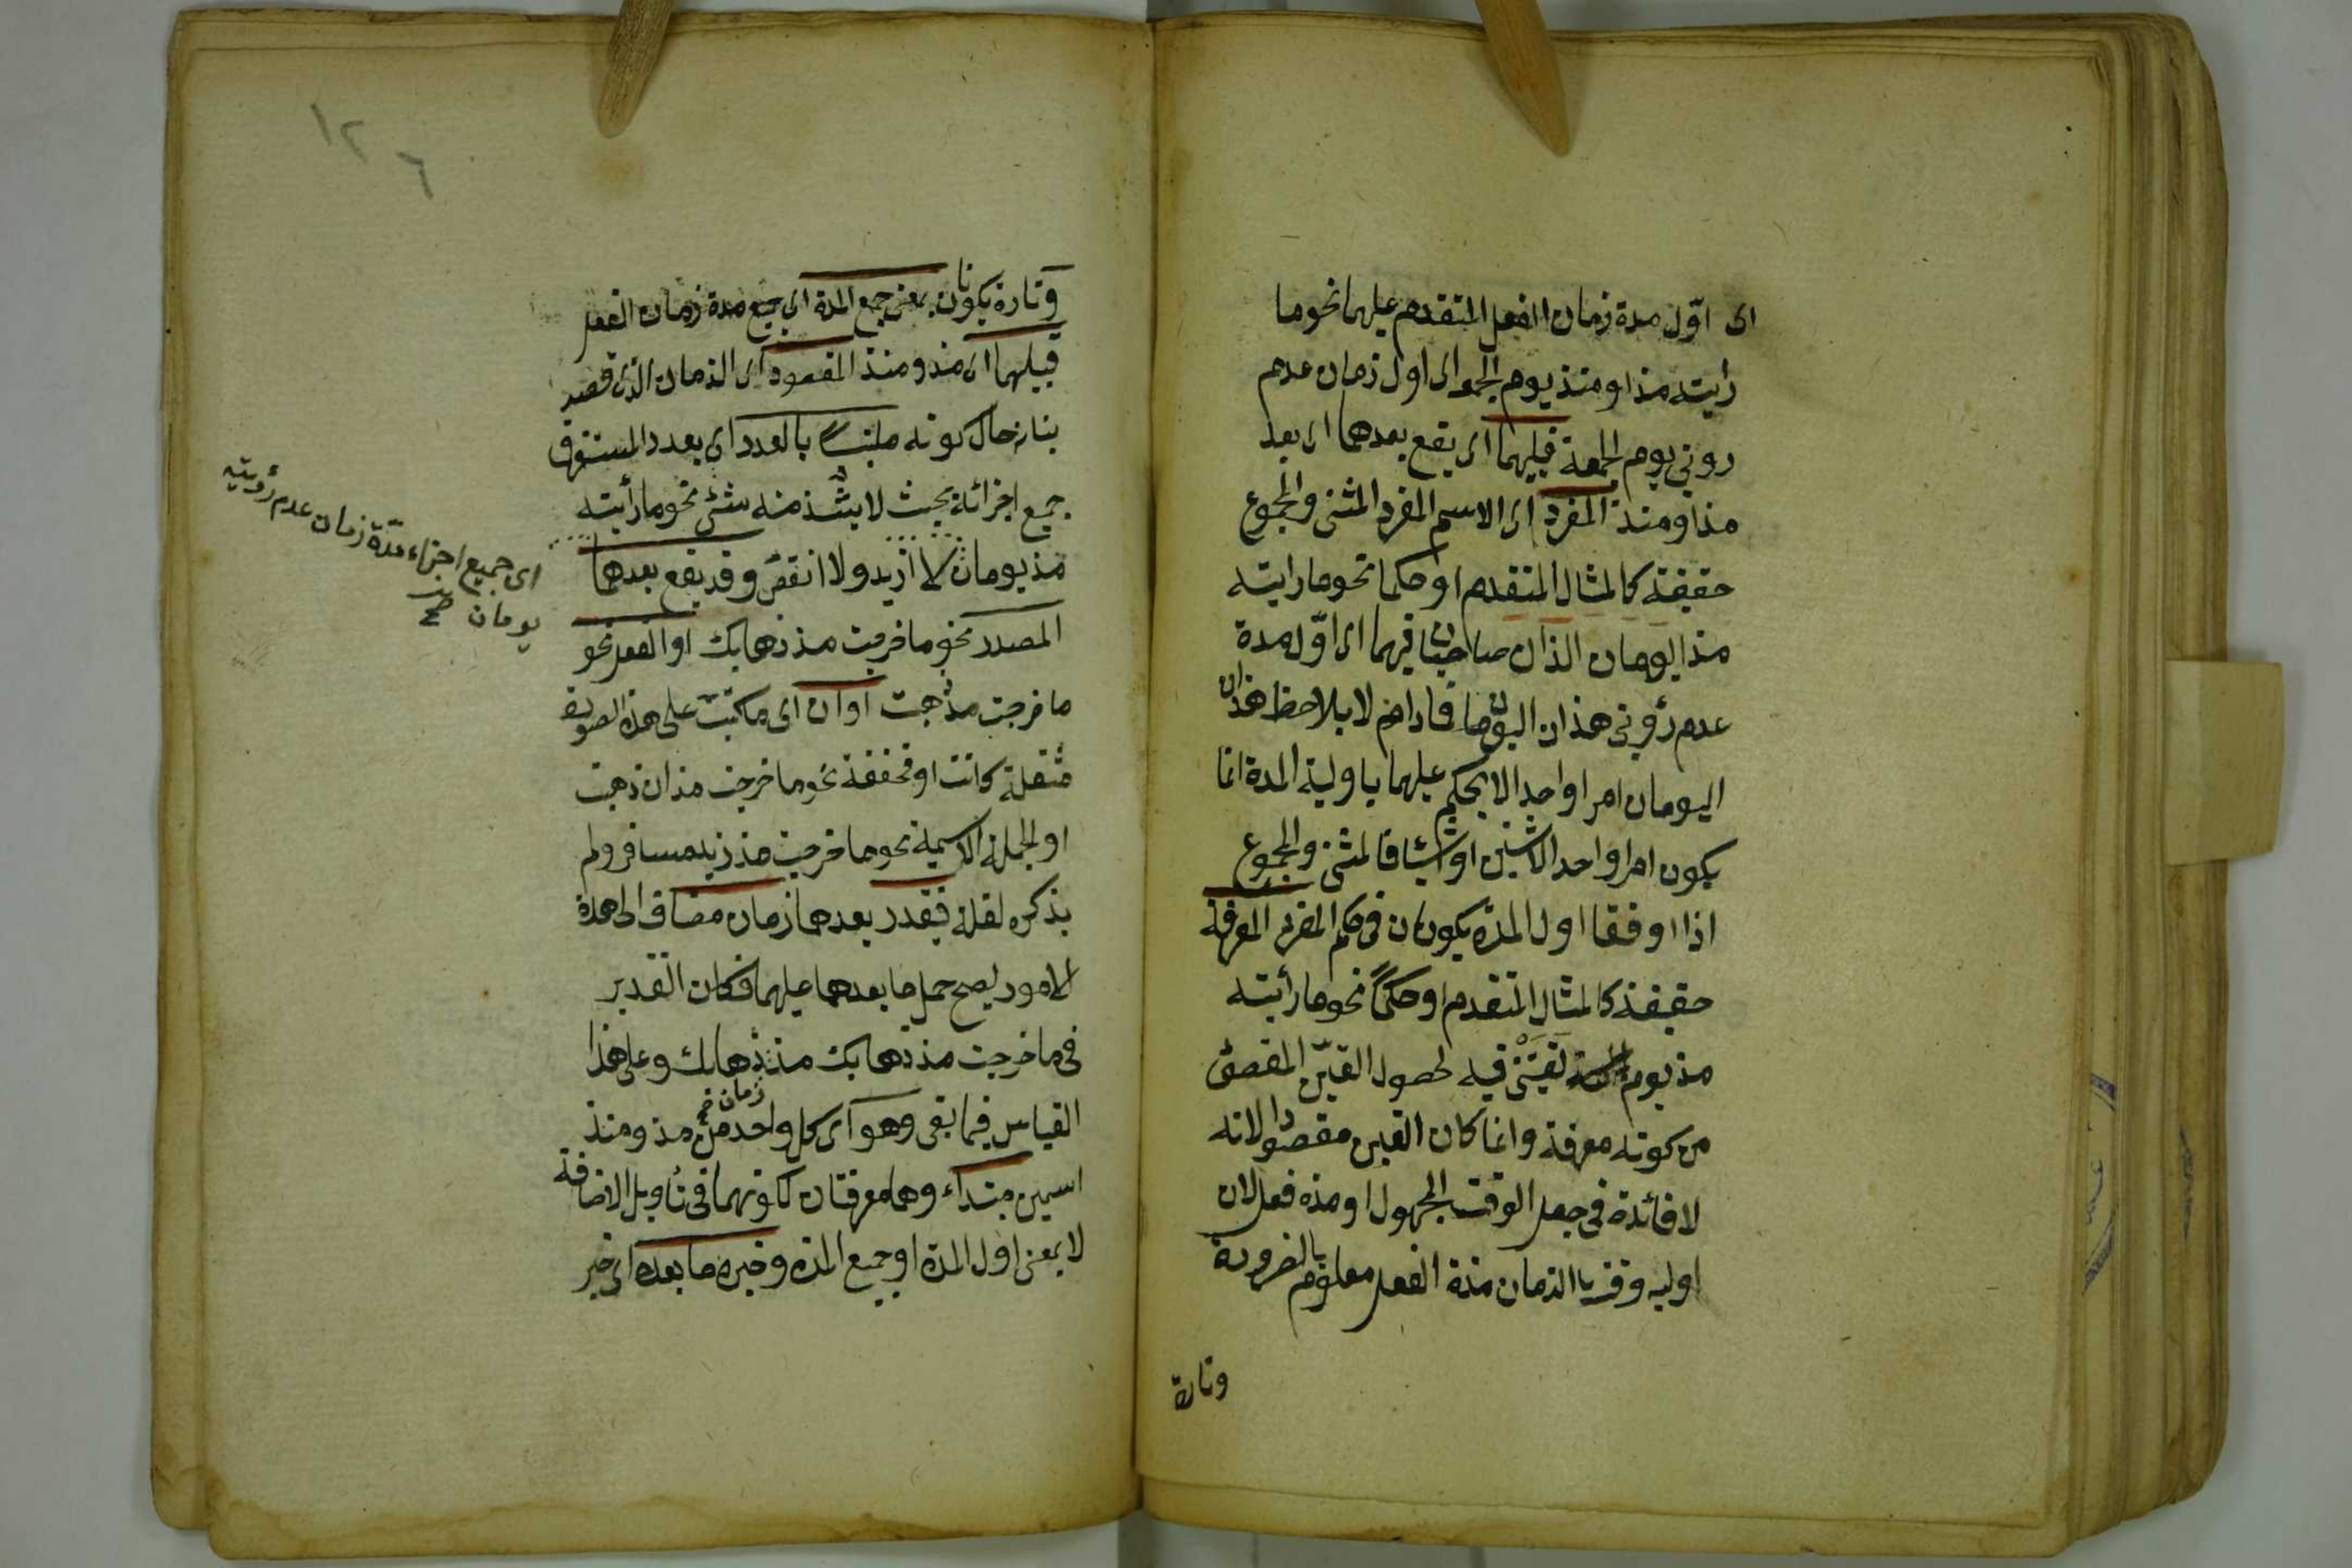 اى اوّل مدة زمان الفعل المتقدم عليهما نحو ما
رايته مذ او منذ يوم الجمعه اى اول زمان عدم
رونى يوم الجمعة فيليهما اى يقع بعدهما اى بعد
مذ او منذ المفرد اى الاسم المفرد المثنى والمجموع
حقيقة كالمثال المتقدم او حكما نحو ما رايته
مذ اليومان الذان صاحبنا فيهما اى اوّل مدة
عدم رؤنى هذان اليومان لا يلاحظ هذان
اليومان امرا واحدا لا يحكم عليهما باولية المدة انما
يكون امرا واحد الاشنين او شيئا فالمثنى والمجموع
اذا اوقفا اول المدة يكونان فى حكم المفرد المعرفة
حقيقة كالمثال المتقدم او حكمًا نحو ما رأيته
مذ يوم لقيتنى فيه لحصول التعين المقصود
من كونه معرفة وانما كان التعين مقصودا لانه
لا فائدة فى جعل الوقت المجهول او مدة فعل لان
اوليه وقت ما الزمان مدة الفعل معلوم بالضرورة
وتارة
وتارة يكونان بمعنى جميع المدة اى جميع مدة زمان الفعل
فيليهما اى مذ ومنذ المقصود اى الزمان الذى قصد
بيانه حال كونه ملتبسًا بالعدد اى بعدد المستغرق
جميع اجزائه بحيث لا يشذ منه شئ نحو ما رأيته
مذ يومان لا ازيد ولا انقص وقد يقع بعدهما
المصدر نحو ما خرجت مذ ذهابك او الفعل نحو
ما خرجت مذ ذهبت او ان اى مكتبت على هذه الصورة
مثقلة كانت او مخففة نحو ما خرجت مذ ان ذهبت
او الجملة الاسمية نحو ما خرجت مذ زيد مسافر ولم
يذكره لقلة فيقدر بعدهما زمان مضاف الى هذه
الامور ليصح حمل ما بعدهما عليهما فكان التقدير
فى ما خرجت مذ ذهابك مذ زمان ذهابك وعلى هذا
القياس فيما بقى وهو اى كل واحد من مذ ومنذ
اسمين مبتداء وهما معرفتان لكونهما فى تأويل الاضافة
لا بمعنى اول المدة او جميع المدة وخبره ما بعده اى خبر
اى جميع اجزاء مدّة زمان عدم رؤيته
يومان صح
١٢٦